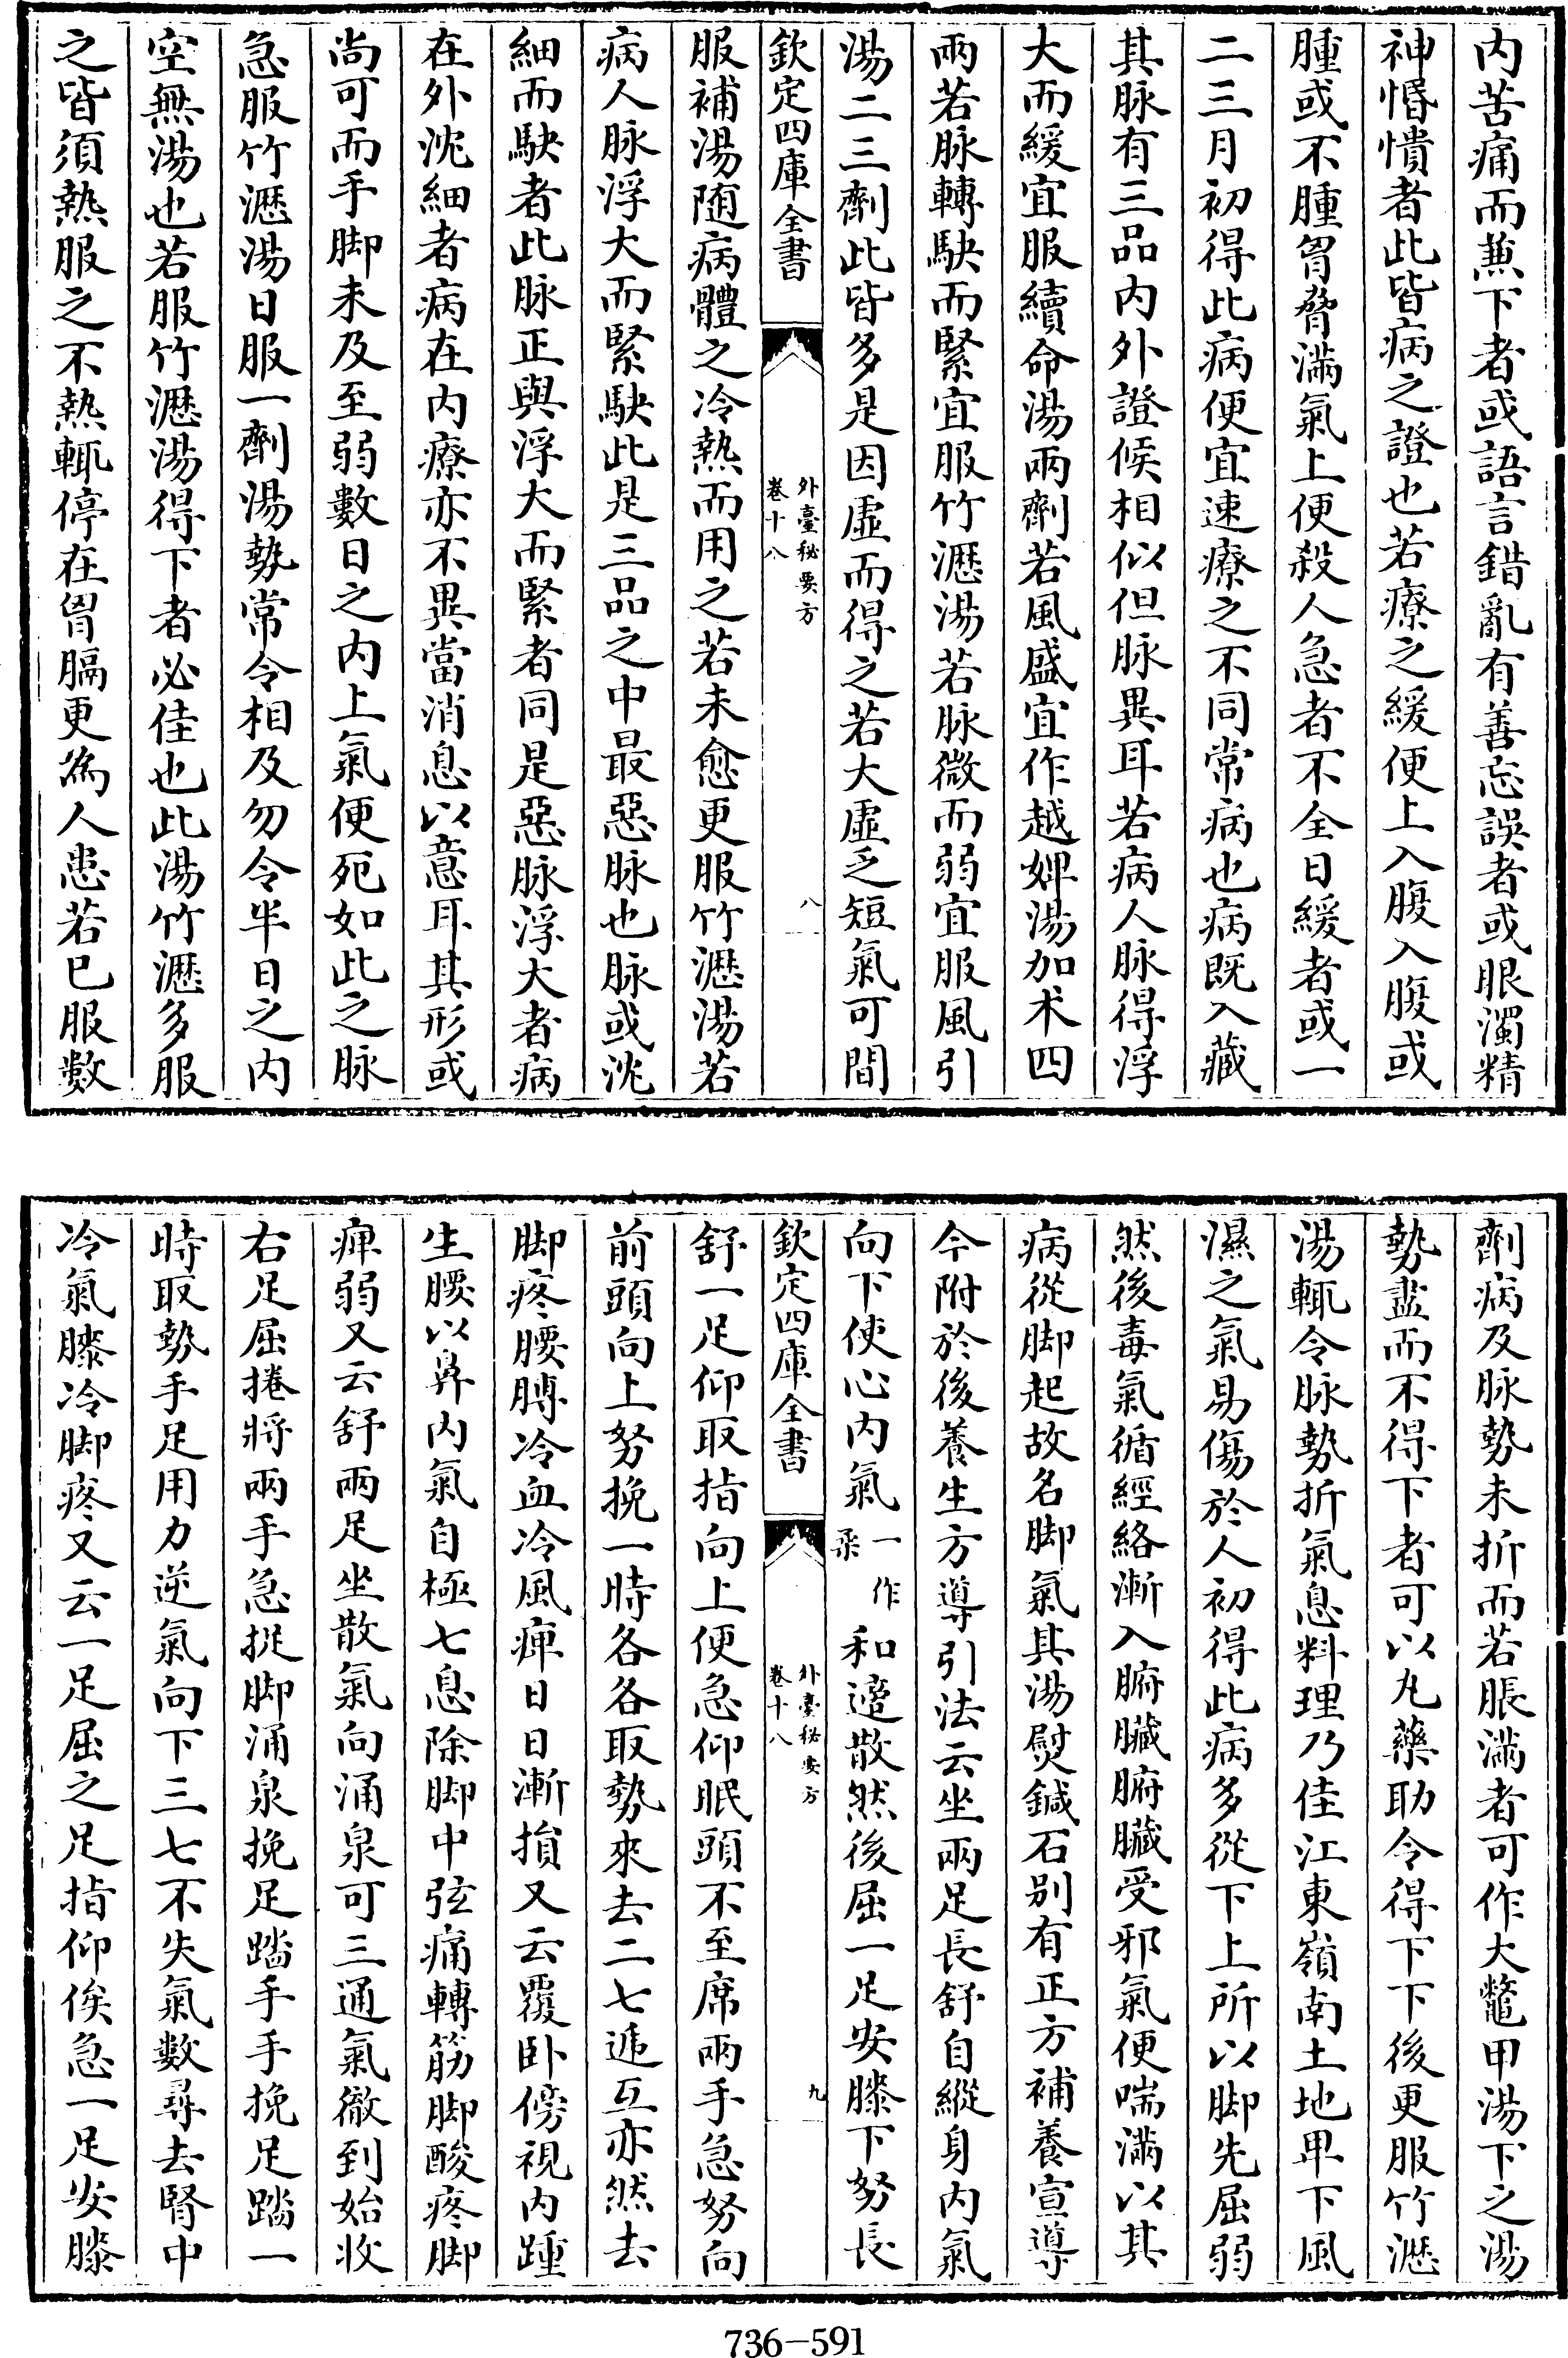 内苦痛而蕪下者或語言錯亂有善忘誤者或眼濁精
神惛憒者此皆病之證也若療之緩便上入腹入腹或
腫或不腫胷脅滿氣上便殺人急者不全日緩者或一
二三月初得此病便宜速療之不同常病也病既入藏
其脉有三品内外證候相似但脉異耳若病人脉得浮
大而緩宜服續命湯兩劑若風盛宜作越婢湯加术四
兩若脉轉駃而緊宜服竹瀝湯若脉微而弱宜服風引
湯二三劑此皆多是因虛而得之若大虛乏短氣可間
欽定四庫全書
外臺秘要方
卷十八
八
服補湯随病體之冷熱而用之若未愈更服竹瀝湯若
病人脉浮大而緊駃此是三品之中最惡脉也脉或沈
細而駃者此脉正與浮大而緊者同是惡脉浮大者病
在外沈細者病在内療亦不異當消息以意耳其形或
尚可而手脚未及至弱數日之内上氣便死如此之脉
急服竹瀝湯日服一劑湯勢常令相及勿令半日之内
空無湯也若服竹瀝湯得下者必佳也此湯竹瀝多服
之皆須熱服之不熱輒停在胷膈更為人患若已服數
劑病及脉勢未折而若脹滿者可作大鼈甲湯下之湯
勢盡而不得下者可以丸藥助令得下下後更服竹瀝
湯輒令脉勢折氣息料理乃佳江東嶺南土地卑下風
濕之氣易傷於人初得此病多從下上所以脚先屈弱
然後毒氣循經絡漸入腑臟腑臟受邪氣便喘滿以其
病從脚起故名脚氣其湯熨鍼石别有正方補養宣導
今附於後養生方導引法云坐兩足長舒自縱身内氣
向下使心内氣一作柔和適散然後屈一足安膝下努長
欽定四庫全書
外臺秘要方
卷十八
九
舒一足仰取指向上便急仰眠頭不至席兩手急努向
前頭向上努挽一時各各取勢來去二七遞互亦然去
脚疼腰膊冷血冷風痺日日漸損又云覆卧傍視内踵
生腰以鼻内氣自極七息除脚中弦痛轉筋脚酸疼脚
痺弱又云舒兩足坐散氣向涌泉可三通氣徹到始收
右足屈捲將兩手急捉脚涌泉挽足踏手手挽足踏一
時取勢手足用力逆氣向下三七不失氣數尋去腎中
冷氣膝冷脚疼又云一足屈之足指仰俟急一足安膝
736-591